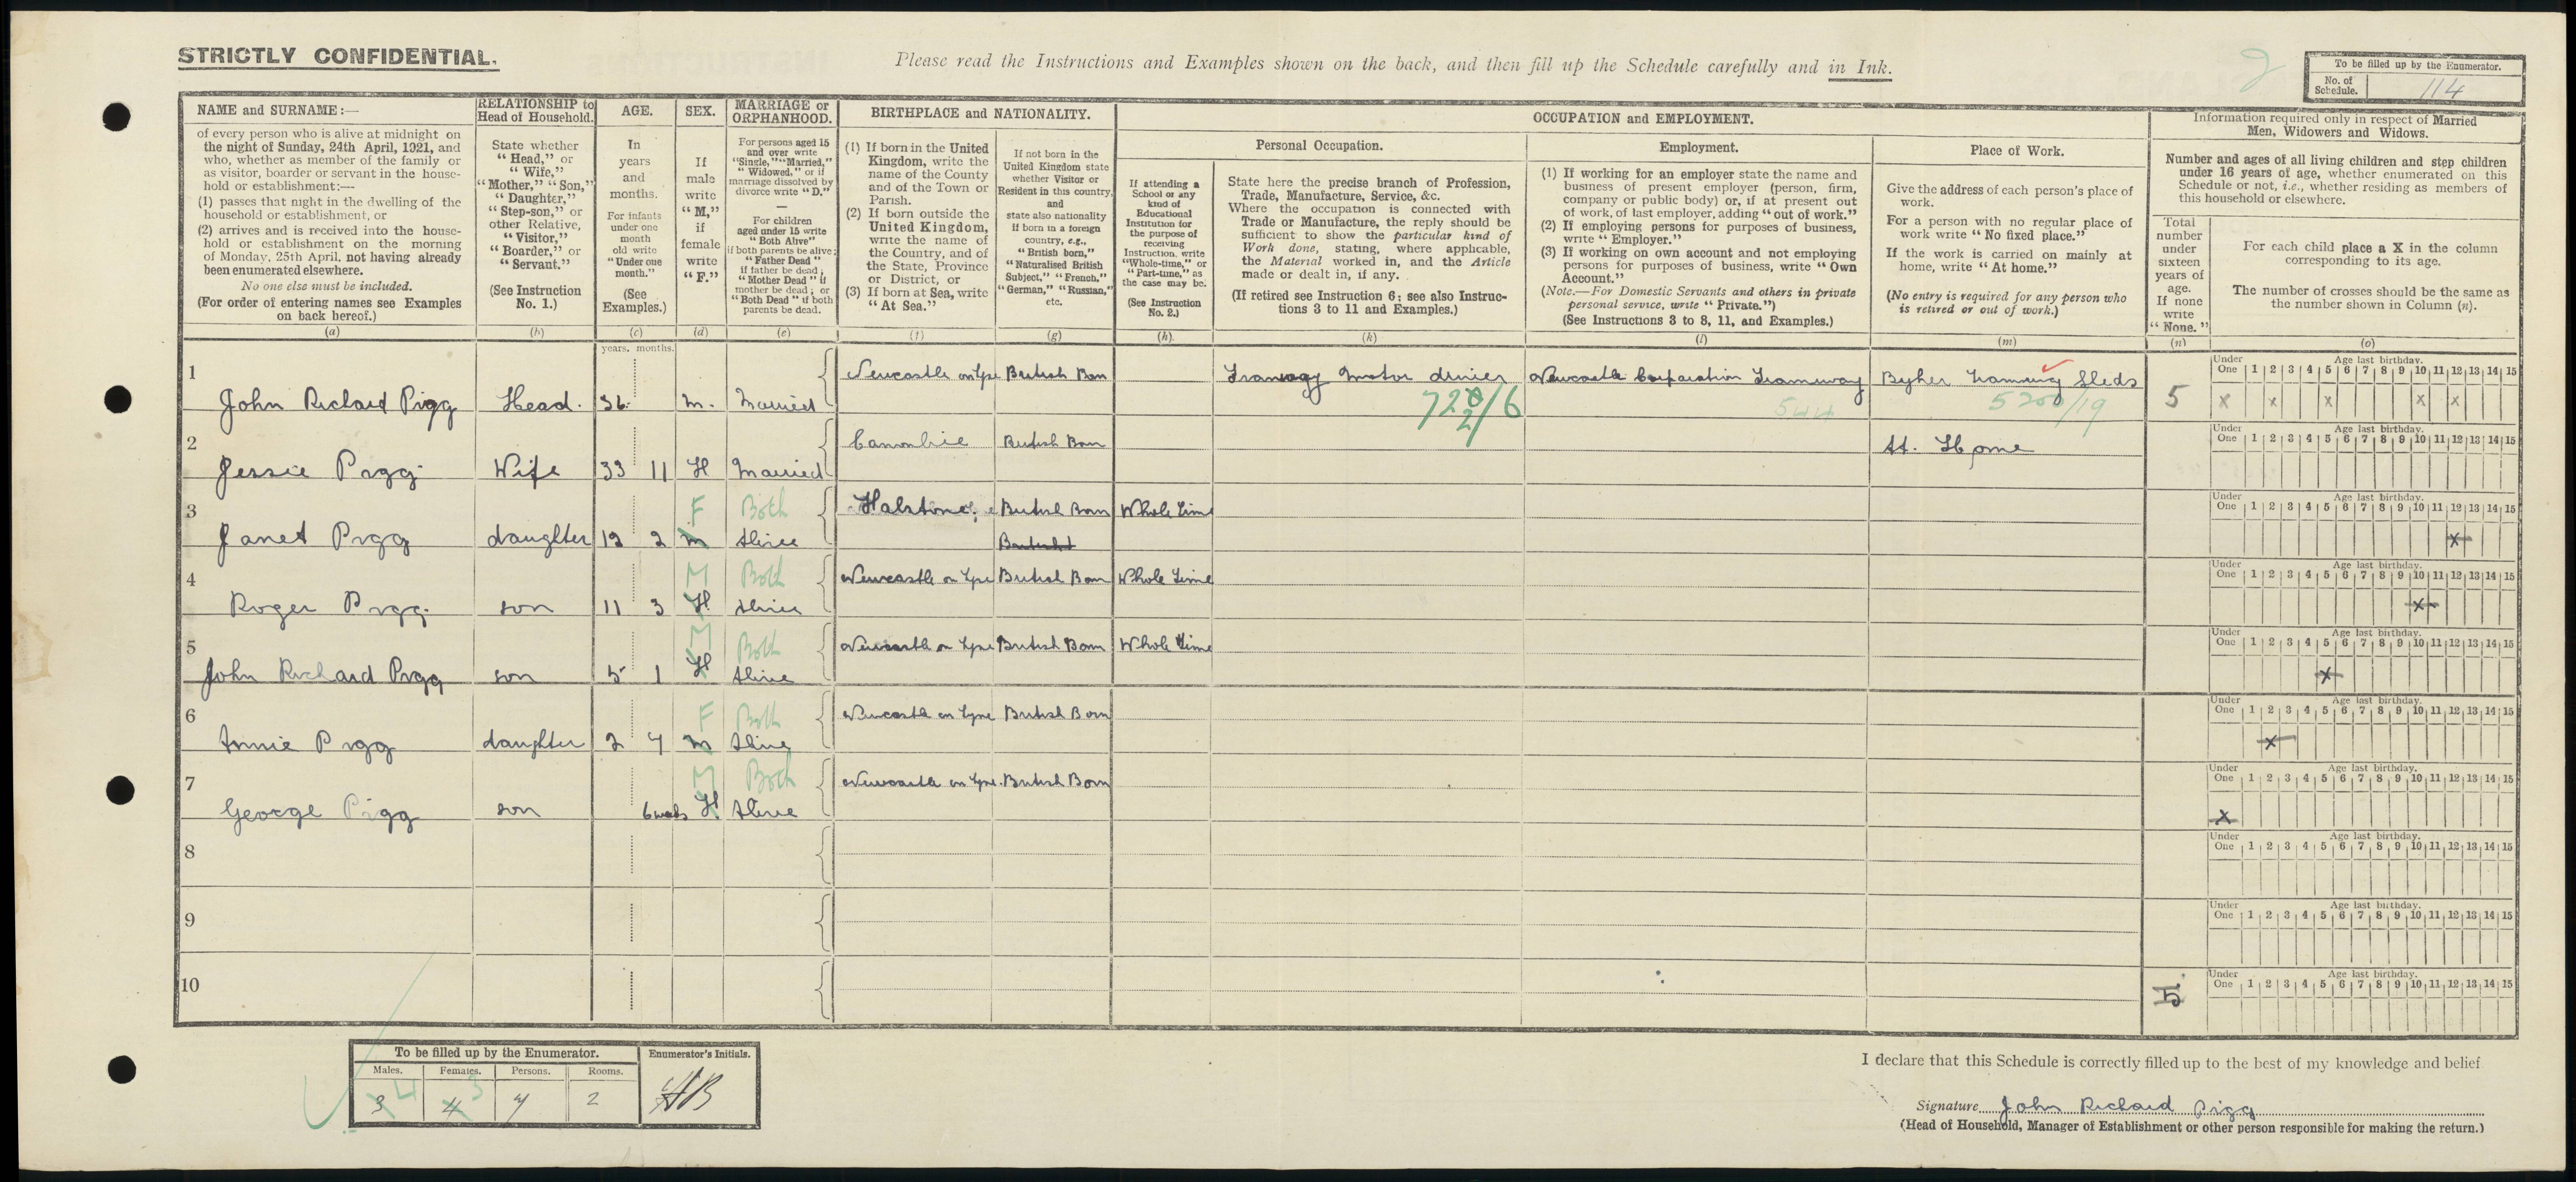 STRICTLY CONFIDENTIAL.
Please read the Instructions and Examples shown on the back, and then fill up the Schedule carefully and in Ink.
2
To be filled up by the Enumerator.
No. of Schedule. 114
NAME and SURNAME:—
of every person who is alive at midnight on
the night of Sunday, 24th April, 1921, and
who, whether as member of the family or
as visitor, boarder or servant in the house-
hold or establishment:—
(1) passes that night in the dwelling of the
household or establishment, or
(2) arrives and is received into the house-
hold or establishment on the morning
of Monday, 25th April, not having already
been enumerated elsewhere.
No one else must be included.
(For order of entering names see Examples
on back hereof.)
(a)
RELATIONSHIP to
Head of Household.
State whether
"Head," or
"Wife,"
"Mother," "Son,"
"Daughter,"
"Step-son," or
other Relative,
"Visitor,"
"Boarder," or
"Servant."
(See Instruction
No. 1.)
(b)
AGE.
In
years
and
months.
For infants
under one
month
old write
"Under one
month."
(See
Examples.)
(c)
SEX.
If
male
write
"M,"
if
female
write
"F."
(d)
MARRIAGE or
ORPHANHOOD.
For persons aged 15
and over write
"Single," "Married,"
"Widowed," or if
marriage dissolved by
divorce write "D."
—
For children
aged under 15 write
"Both Alive"
if both parents be alive;
"Father Dead"
if father be dead;
"Mother Dead" if
mother be dead; or
"Both Dead" if both
parents be dead.
(e)
BIRTHPLACE and NATIONALITY.
(1) If born in the United
Kingdom, write the
name of the County
and of the Town or
Parish.
(2) If born outside the
United Kingdom,
write the name of
the Country, and of
the State, Province
or District, or
(3) If born at Sea, write
"At Sea."
(f)
If not born in the
United Kingdom state
whether Visitor or
Resident in this country,
and
state also nationality
if born in a foreign
country, e.g.,
"British born,"
"Naturalised British
Subject," "French,"
"German," "Russian,"
etc.
(g)
OCCUPATION and EMPLOYMENT.
If attending a
School or any
kind of
Educational
Institution for
the purpose of
receiving
Instruction, write
"Whole-time," or
"Part-time," as
the case may be.
(See Instruction
No. 2.)
(h)
Personal Occupation.
State here the precise branch of Profession,
Trade, Manufacture, Service, &c.
Where the occupation is connected with
Trade or Manufacture, the reply should be
sufficient to show the particular kind of
Work done, stating, where applicable,
the Material worked in, and the Article
made or dealt in, if any.
(If retired see Instruction 6; see also Instruc-
tions 3 to 11 and Examples.)
(k)
Employment.
(1) If working for an employer state the name and
business of present employer (person, firm,
company or public body) or, if at present out
of work, of last employer, adding "out of work."
(2) If employing persons for purposes of business,
write "Employer."
(3) If working on own account and not employing
persons for purposes of business, write "Own
Account."
(Note.—For Domestic Servants and others in private
personal service, write "Private.")
(See Instructions 3 to 8, 11, and Examples.)
(l)
Place of Work.
Give the address of each person's place of
work.
For a person with no regular place of
work write "No fixed place."
If the work is carried on mainly at
home, write "At home."
(No entry is required for any person who
is retired or out of work.)
(m)
Information required only in respect of Married
Men, Widowers and Widows.
Number and ages of all living children and step children
under 16 years of age, whether enumerated on this
Schedule or not, i.e., whether residing as members of
this household or elsewhere.
Total
number
under
sixteen
years of
age.
If none
write
"None."
(n)
For each child place a X in the column
corresponding to its age.
The number of crosses should be the same as
the number shown in Column (n).
(o)
years. months.
Under One Age last birthday.
1 2 3 4 5 6 7 8 9 10 11 12 13 14 15
1 John Richard Pigg Head. 36 M. Married Newcastle on Tyne British Born Tramway Motor driver Newcastle Corporation Tramway Byker Tramway Sheds 5 x x x x x
72 2/6 5200/19
2 Jessie Pigg Wife 33 11 H Married Canonbie British Born At. Home
Under One Age last birthday.
1 2 3 4 5 6 7 8 9 10 11 12 13 14 15
3 Janet Pigg daughter 12 2 M F Both Alive British Born Whole Time x
British
Under One Age last birthday.
1 2 3 4 5 6 7 8 9 10 11 12 13 14 15
4 Roger Pigg son 11 3 H M Both Alive Newcastle on Tyne British Born Whole Time x
Under One Age last birthday.
1 2 3 4 5 6 7 8 9 10 11 12 13 14 15
5 John Richard Pigg son 5 1 H M Both Alive Newcastle on Tyne British Born Whole Time x
Under One Age last birthday.
1 2 3 4 5 6 7 8 9 10 11 12 13 14 15
6 Annie Pigg daughter 2 4 M F Both Alive Newcastle on Tyne British Born x
Under One Age last birthday.
1 2 3 4 5 6 7 8 9 10 11 12 13 14 15
7 George Pigg son 6 weeks H M Both Alive Newcastle on Tyne. British Born x
Under One Age last birthday.
1 2 3 4 5 6 7 8 9 10 11 12 13 14 15
8
Under One Age last birthday.
1 2 3 4 5 6 7 8 9 10 11 12 13 14 15
9
Under One Age last birthday.
1 2 3 4 5 6 7 8 9 10 11 12 13 14 15
10 5.
Under One Age last birthday.
1 2 3 4 5 6 7 8 9 10 11 12 13 14 15
To be filled up by the Enumerator. Enumerator's Initials.
Males. Females. Persons. Rooms.
3 4 4 3 7 2
I declare that this Schedule is correctly filled up to the best of my knowledge and belief
Signature John Richard Pigg
(Head of Household, Manager of Establishment or other person responsible for making the return.)